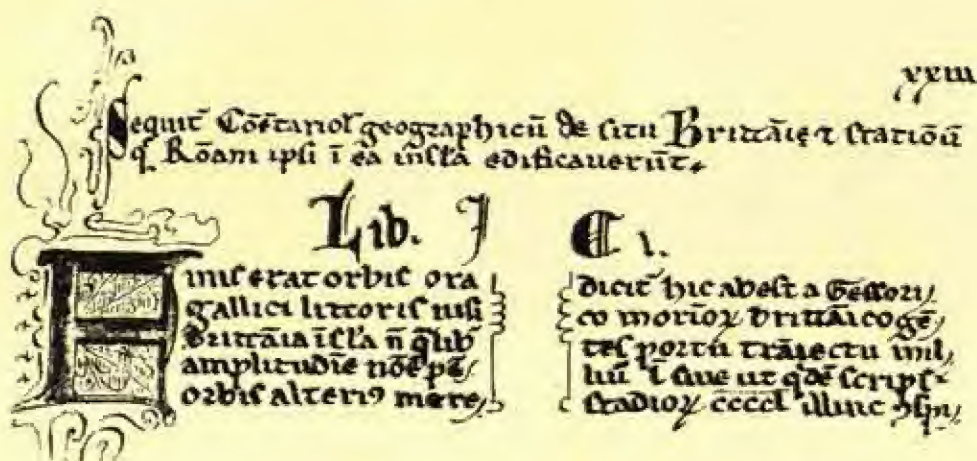 xxiii
Sequit̄ Cōēt̄ariol' geographicū de ſitu Brittāię ⁊ ſtatiōū
q̄ Rōani ipſi ī ea īnſl̄a edificauerūt.
Lib. I C i.
Finiſ erat orbiſ ora
gallici littoriſ niſi
Brittāia īſl̄a n̄ q̄lib'
amplitudīe nōē pē
orbiſ alteriꝰ mere
dicit̄ hic abeſt a Geſſori
co morīoꝝ brittāico gē
teſ portū trāiectu mil
liū l ſiue ut q̄dē ſcripſ
ſtadioꝝ c̄c̄c̄c̄l illinc